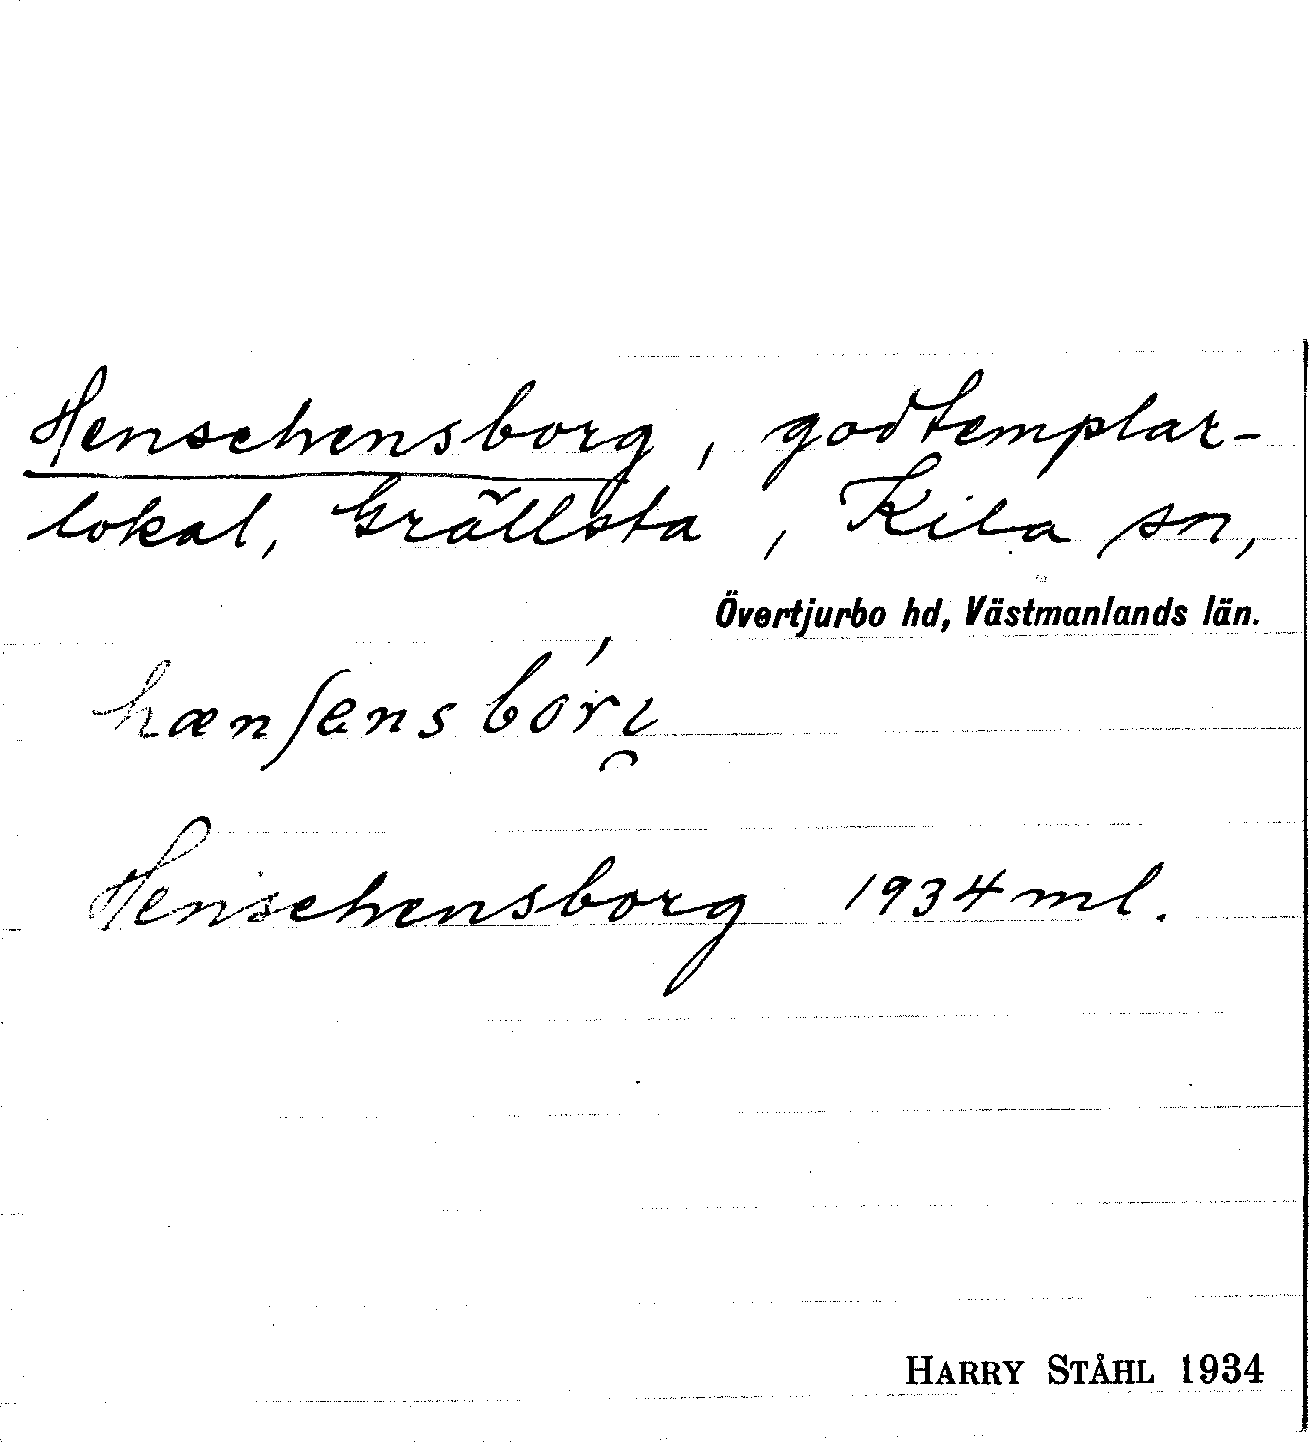 Henschensborg, godtemplar-
lokal, Grällsta, Kila sn,
Övertjurbo hd, Västmanlands län.
Henschensborg 1934 ml.
HARRY STÅHL 1934